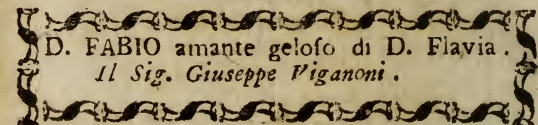 D. FABIO amante geloſo di D. Flavia.
Il Sig. Giuseppe Viganoni.